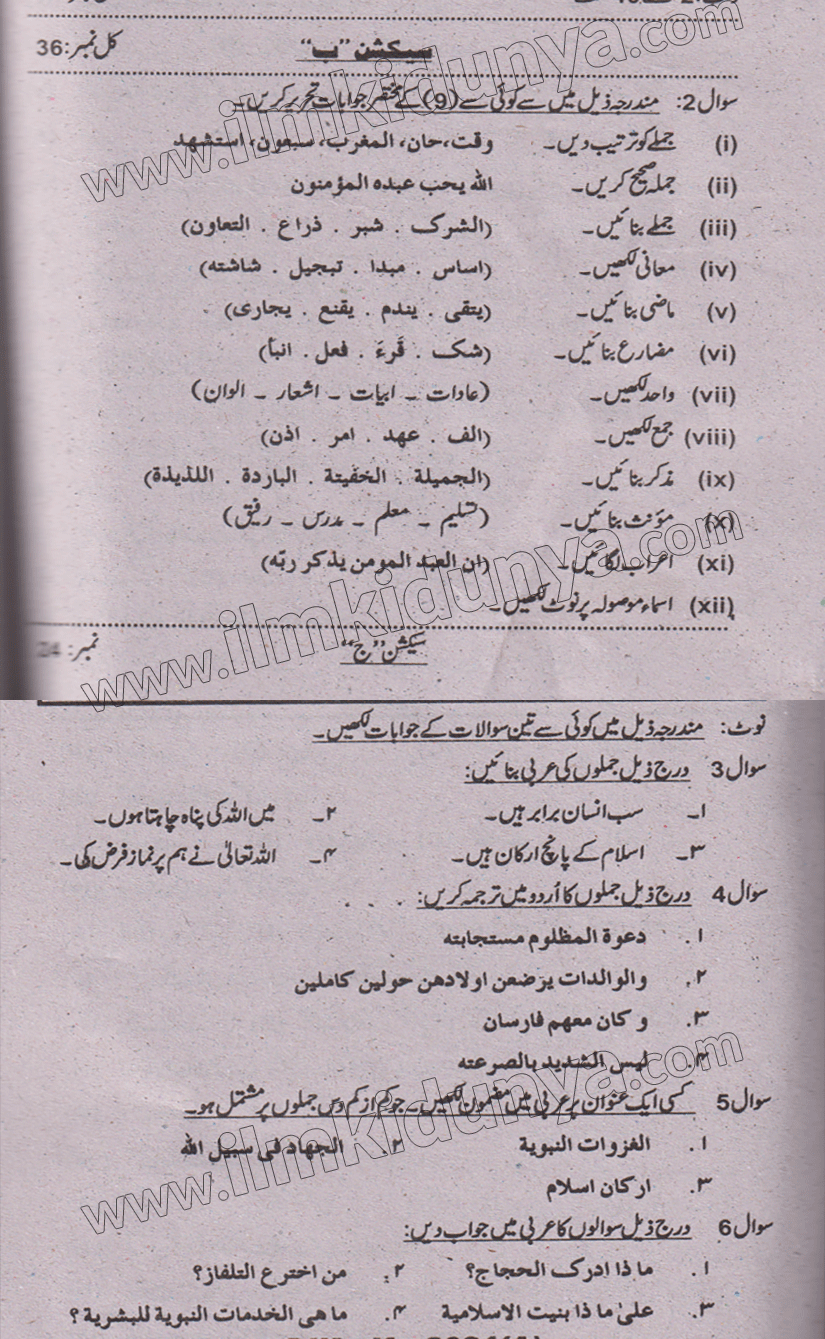 کل نمبر:36 سیکشن ”ب“
سوال 2: مندرجہ ذیل میں سے کوئی سے (9) کے مختصر جوابات تحریر کریں۔
(i) جملے کو ترتیب دیں۔ وقت، حان، المغرب، سبعون، استشهد
(ii) جملہ صحیح کریں۔ الله يحب عبده المؤمنون
(iii) جملے بنائیں۔ (الشرک . شبر . ذراع . التعاون)
(iv) معانی لکھیں۔ (اساس . مبدا . تبجیل . شاشته)
(v) ماضی بنائیں۔ (یتقی . یندم . یقنع . یجاری)
(vi) مضارع بنائیں۔ (شک . قَرءَ . فعل . انبأ)
(vii) واحد لکھیں۔ (عادات ۔ ابیات ۔ اشعار ۔ الوان)
(viii) جمع لکھیں۔ (الف . عهد . امر . اذن)
(ix) مذکر بنائیں۔ (الجميلة . الخفيتة . الباردة . اللذيذة)
(x) مؤنث بنائیں۔ (تسلیم ۔ معلم ۔ مدرس ۔ رفیق)
(xi) اعراب لگائیں۔ (ان العبد المومن یذکر ربّه)
(xii) اسماء موصولہ پر نوٹ لکھیں۔
نمبر: 24 سیکشن ”ج“
نوٹ: مندرجہ ذیل میں کوئی سے تین سوالات کے جوابات لکھیں۔
سوال 3 درج ذیل جملوں کی عربی بنائیں:
۱۔ سب انسان برابر ہیں۔ ۲۔ میں اللہ کی پناہ چاہتا ہوں۔
۳۔ اسلام کے پانچ ارکان ہیں۔ ۴۔ اللہ تعالیٰ نے ہم پر نماز فرض کی۔
سوال 4 درج ذیل جملوں کا اُردو میں ترجمہ کریں:
۱. دعوة المظلوم مستجابته
۲. والوالدات یرضعن اولادهن حولین کاملین
۳. و کان معهم فارسان
۴. لیس الشدید بالصرعته
سوال 5 کسی ایک عنوان پر عربی میں مضمون لکھیں۔ جو کم از کم دس جملوں پر مشتمل ہو۔
۱. الغزوات النبوية ۲. الجهاد فی سبیل الله
۳. ارکان اسلام
سوال 6 درج ذیل سوالوں کا عربی میں جواب دیں:
۱. ما ذا ادرک الحجاج؟ ۲. من اخترع التلفاز؟
۳. علیٰ ما ذا بنیت الاسلامیة ۴. ما هی الخدمات النبوية للبشرية؟
www.ilmkidunya.com
www.ilmkidunya.com
www.ilmkidunya.com